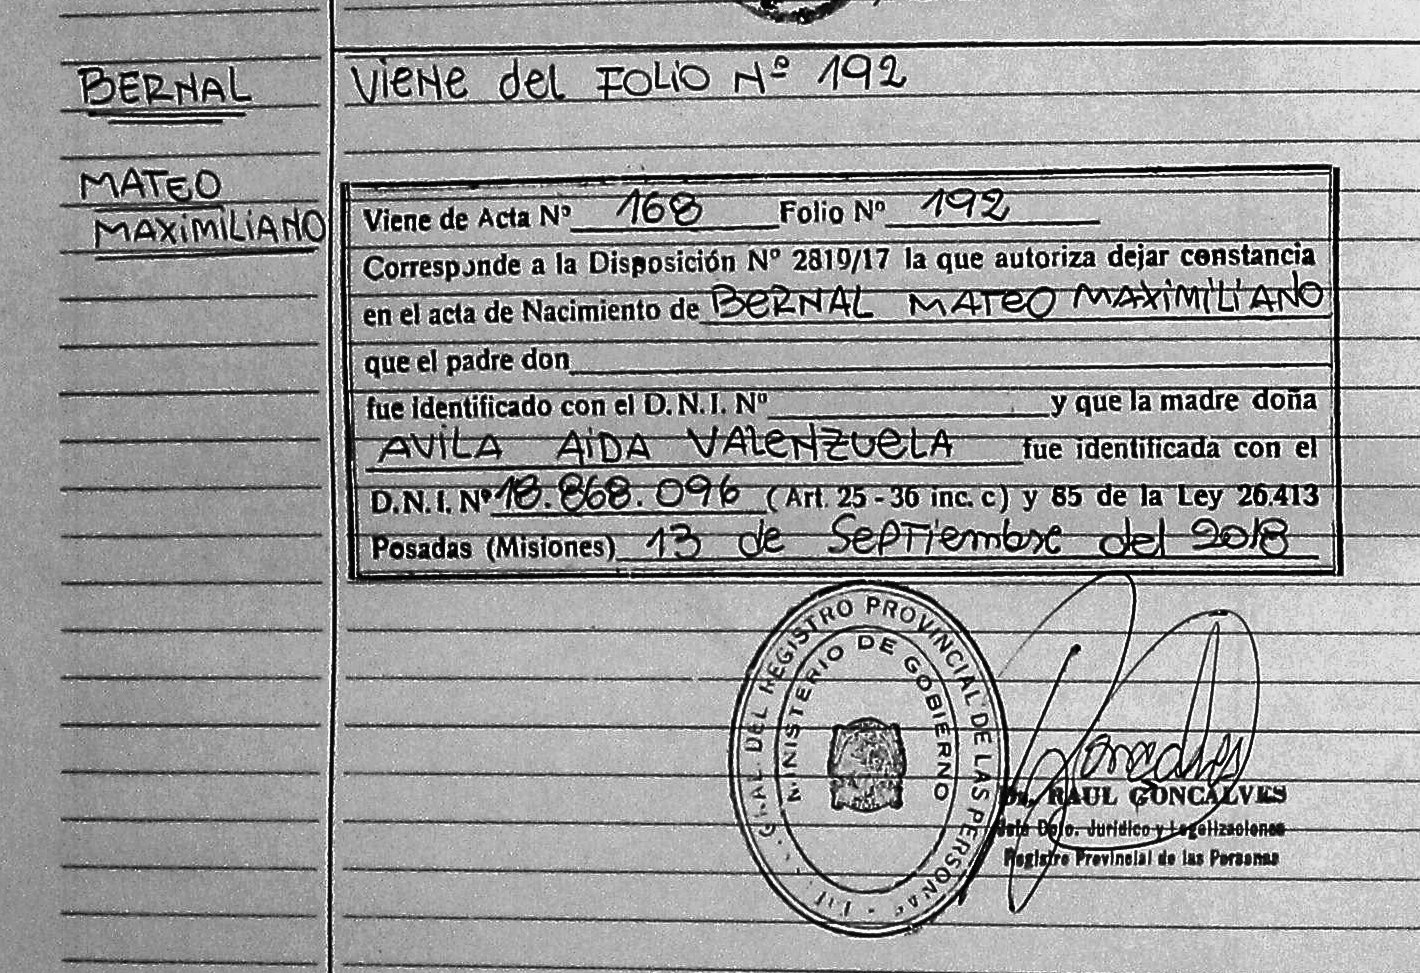 BERNAL
MATEO
MAXIMILIANO
Viene del FOLIO Nº 192
Viene de Acta Nº 168 Folio Nº 192
Corresponde a la Disposición Nº 2819/17 la que autoriza dejar constancia
en el acta de Nacimiento de BERNAL MATEO MAXIMILIANO
que el padre don
fue identificado con el D.N.I. Nº y que la madre doña
AVILA AIDA VALENZUELA fue identificada con el
D.N.I. Nº 18.868.096 (Art. 25 - 36 inc. c) y 85 de la Ley 26.413
Posadas (Misiones) 13 de Septiembre del 2018
GRAL. DEL REGISTRO PROVINCIAL DE LAS PERSONAS
MINISTERIO DE GOBIERNO
Dr. RAUL GONCALVES
Jefe Dpto. Jurídico y Legalizaciones
Registro Provincial de las Personas